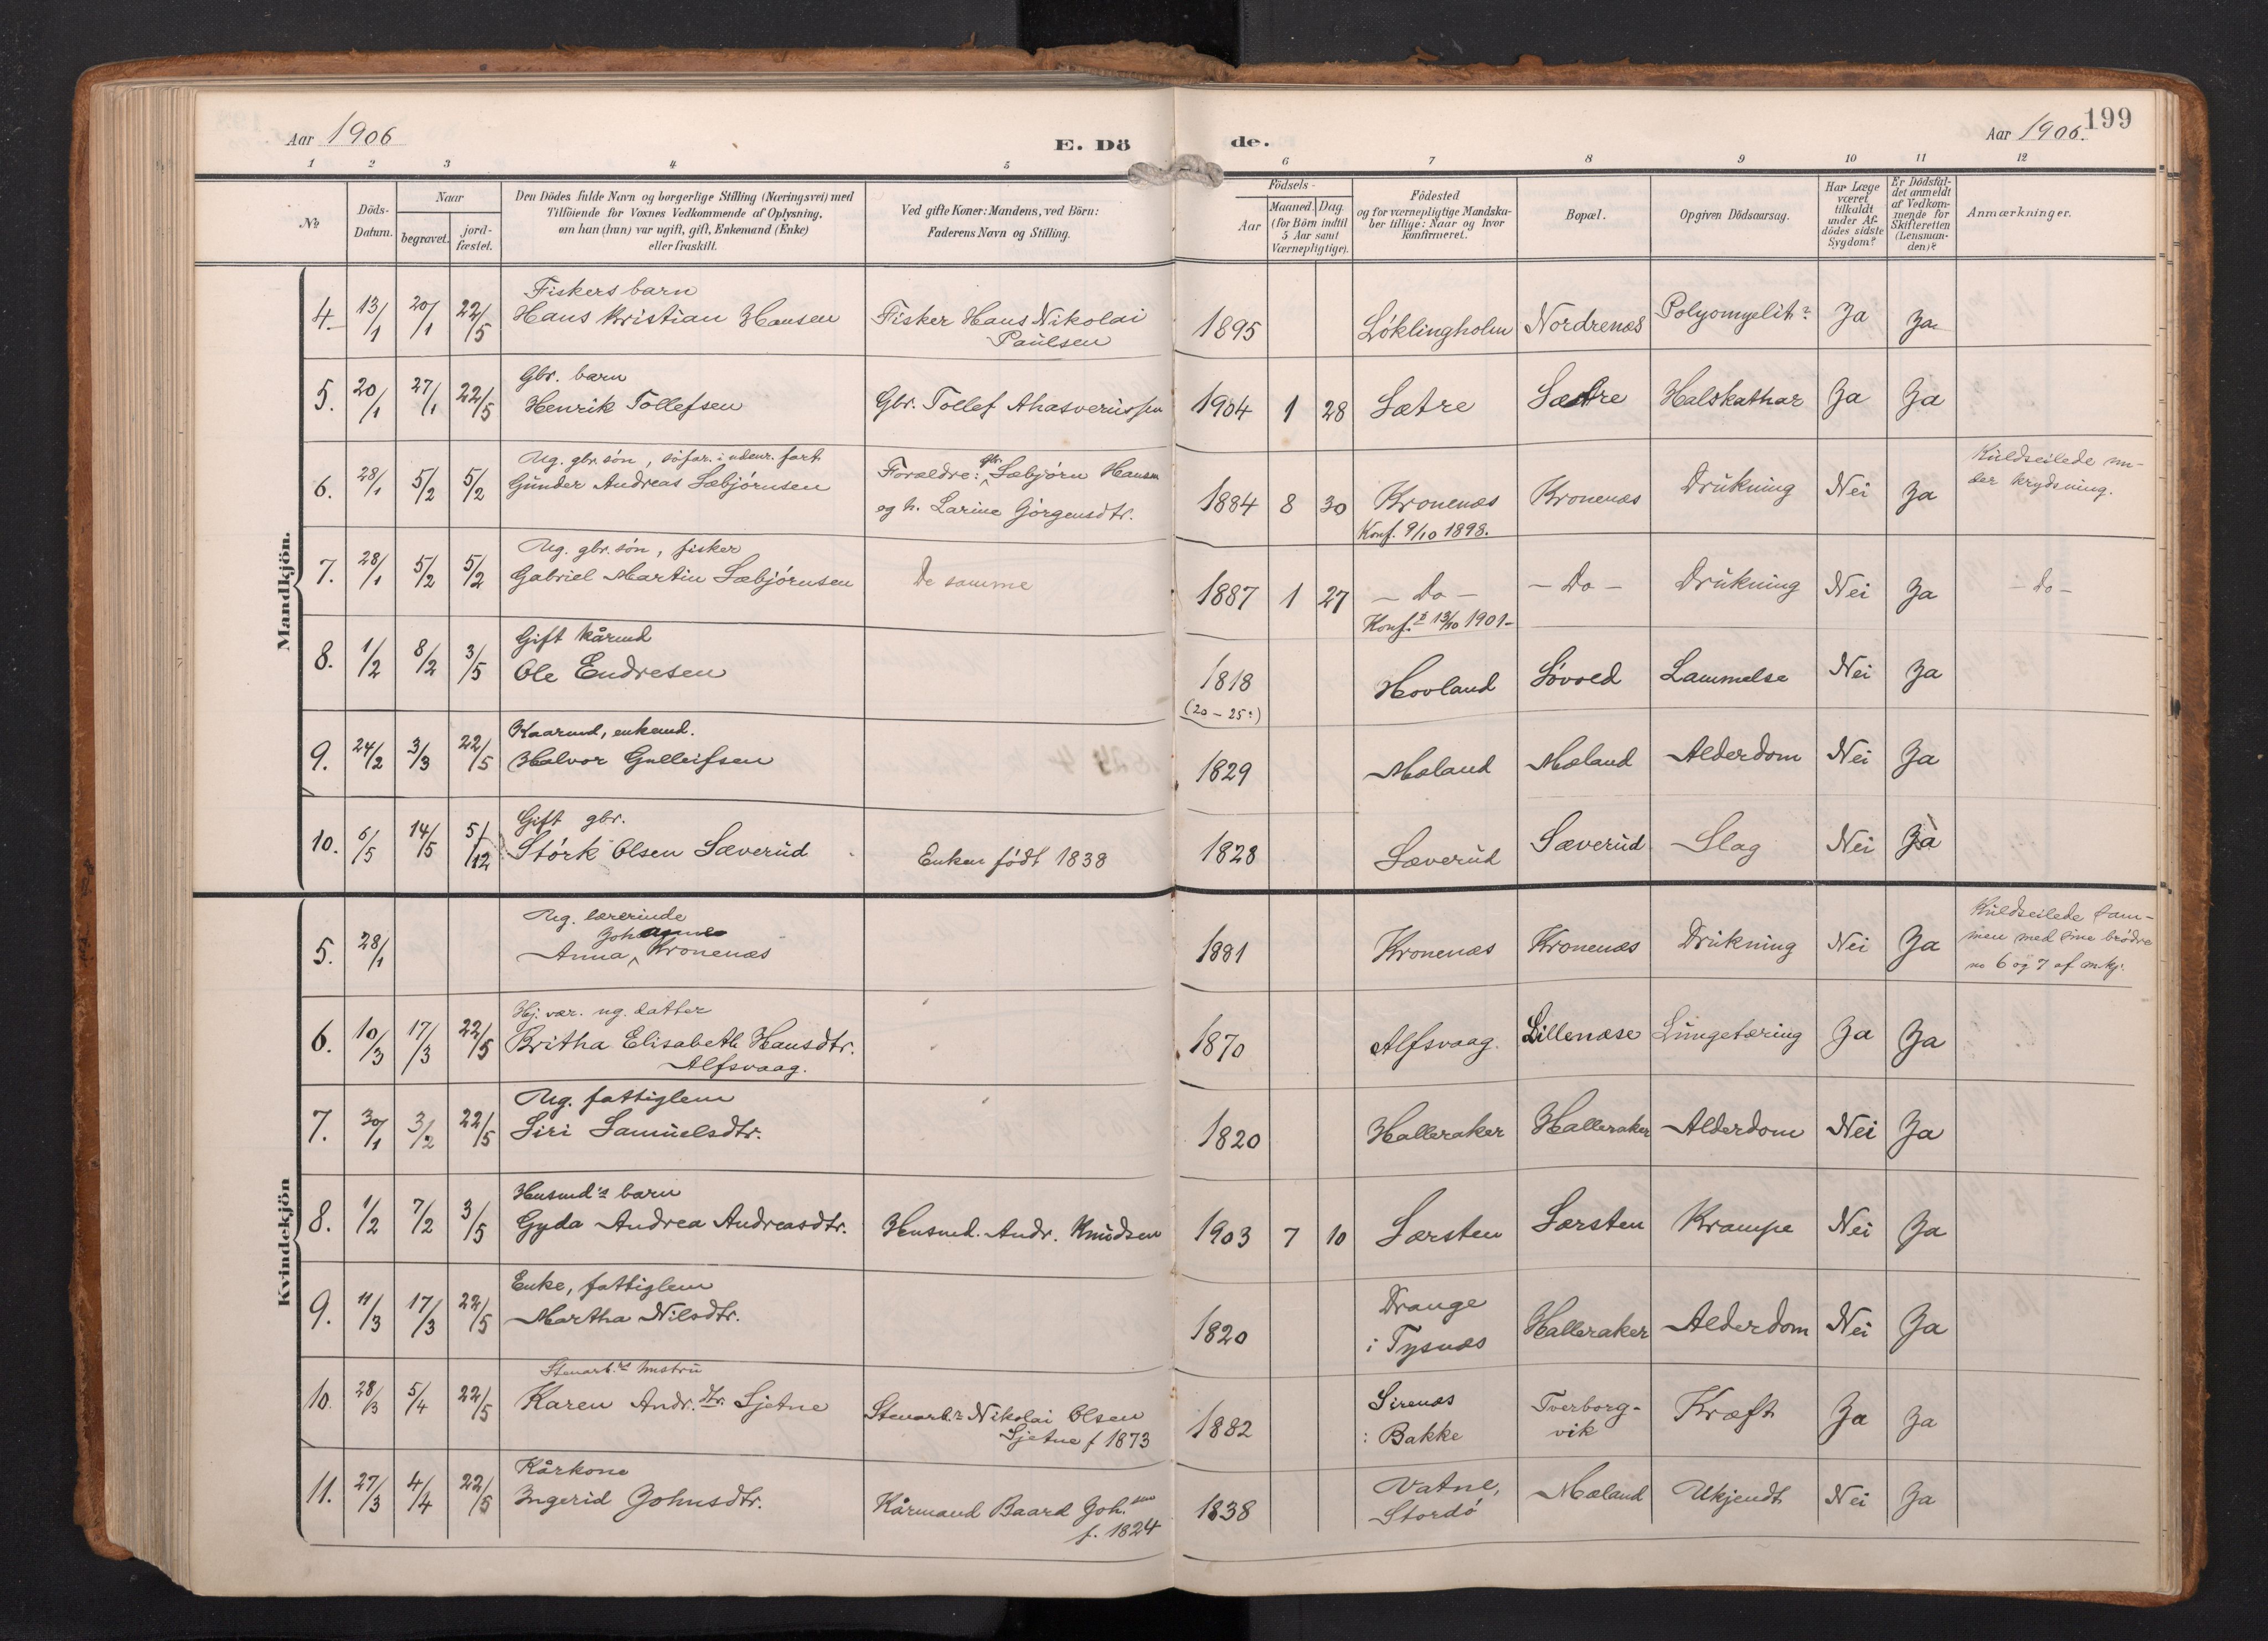 Aar 1906 E. Dö de. Aar 1906. 199
1 2 3 4 5 6 7 8 9 10 11 12
№
Döds-Datum.
Naar
begravet. jord-fæstet.
Den Dödes fulde Navn og borgerlige Stilling (Næringsvei) med
Tilföiende for Voxnes Vedkommende af Oplysning,
om han (hun) var ugift, gift, Enkemand (Enke)
eller fraskilt.
Ved gifte Koner: Mandens, ved Börn:
Faderens Navn og Stilling.
Födsels-
Aar Maaned. Dag.
(for Börn indtil
5 Aar samt
Værnepligtige).
Födested
og for værnepligtige Mandska-
ber tillige: Naar og hvor
konfirmeret.
Bopæl.
Opgiven Dödsaarsag.
Har Læge
været
tilkaldt
under Af-
dödes sidste
Sygdom?
Er Dödsfal-
det anmeldt
af Vedkom-
mende for
Skifteretten
(Lensman-
den)?
Anmærkninger.
Mandkjön.
Fiskers barn
4. 13/1 20/1 22/5 Hans Kristian Hansen Fisker Hans Nikolai
Paulsen
1895 Løklingholm Nordrenæs Polyomyelit? Ja Ja
Gbr. barn
5. 20/1 27/1 22/5 Henrik Tollefsen Gbr. Tollef Ahasverussen 1904 1 28 Sætre Sætre Halskathar Ja Ja
Ug. gbr. søn, søfar. i udenr. fart
6. 28/1 5/2 5/2 Gunder Andreas Sæbjørnsen Forældre: gbr. Sæbjørn Hansen
og h. Larine Gjørgensdtr.
1884 8 30 Kronenæs Kronenæs Drukning Nei Ja Kuldseilede un-
der krydsning.
Konf. 9/10 1898.
Ug. gbr. søn, fisker
7. 28/1 5/2 5/2 Gabriel Martin Sæbjørnsen De samme 1887 1 27 - Do - - Do - Drukning Nei Ja - do -
Konf. 13/10 1901-
Gift kårmd
8. 1/2 8/2 3/5 Ole Endresen 1818 Hovland Løvold Lammelse Nei Ja
(20-25?)
Kaarmd, enkemd.
9. 24/2 3/3 22/5 Halvor Gulleifsen 1829 Mæland Mæland Alderdom Nei Ja
Gift gbr.
10. 6/5 14/5 5/12 Størk Olsen Sæverud Enken født 1838 1828 Sæverud Sæverud Slag Nei Ja
Kvindekjön
Ug. lærerinde
Johanne
5. 28/1 Anna Kronenæs 1881 Kronenæs Kronenæs Drukning Nei Ja Kuldseilede sam-
men med sine brødre
no 6 og 7 af mkj.
Hj. vær. ug. datter
6. 10/3 17/3 22/5 Britha Elisabeth Hansdtr.
Alfsvaag.
1870 Alfsvaag. Lillenæse Lungetæring Ja Ja
Ug. fattiglem
7. 30/1 3/2 22/5 Siri Samuelsdtr. 1820 Halleraker Halleraker Alderdom Nei Ja
Husmd's barn
8. 1/2 7/2 3/5 Gyda Andrea Andreasdtr. Husmd. Andr. Knudsen 1903 7 10 Særsten Særsten Krampe Nei Ja
Enke, fattiglem
9. 11/3 17/3 22/5 Martha Nilsdtr. 1820 Drange
i Tysnæs Halleraker Alderdom Nei Ja
Stenarb.rs hustru
10. 28/3 5/4 22/5 Karen Andr.dtr. Sjetne Stenarb.r Nikolai Olsen
Sjetne f 1873
1882 Sirenæs
: Bakke Tverborg-
vik Kræft Ja Ja
Kårkone
11. 27/3 4/4 22/5 Ingerid Johnsdtr. Kårmand Baard Joh.sen
f. 1824
1838 Vatne,
Stordø Mæland Ukjendt Nei Ja